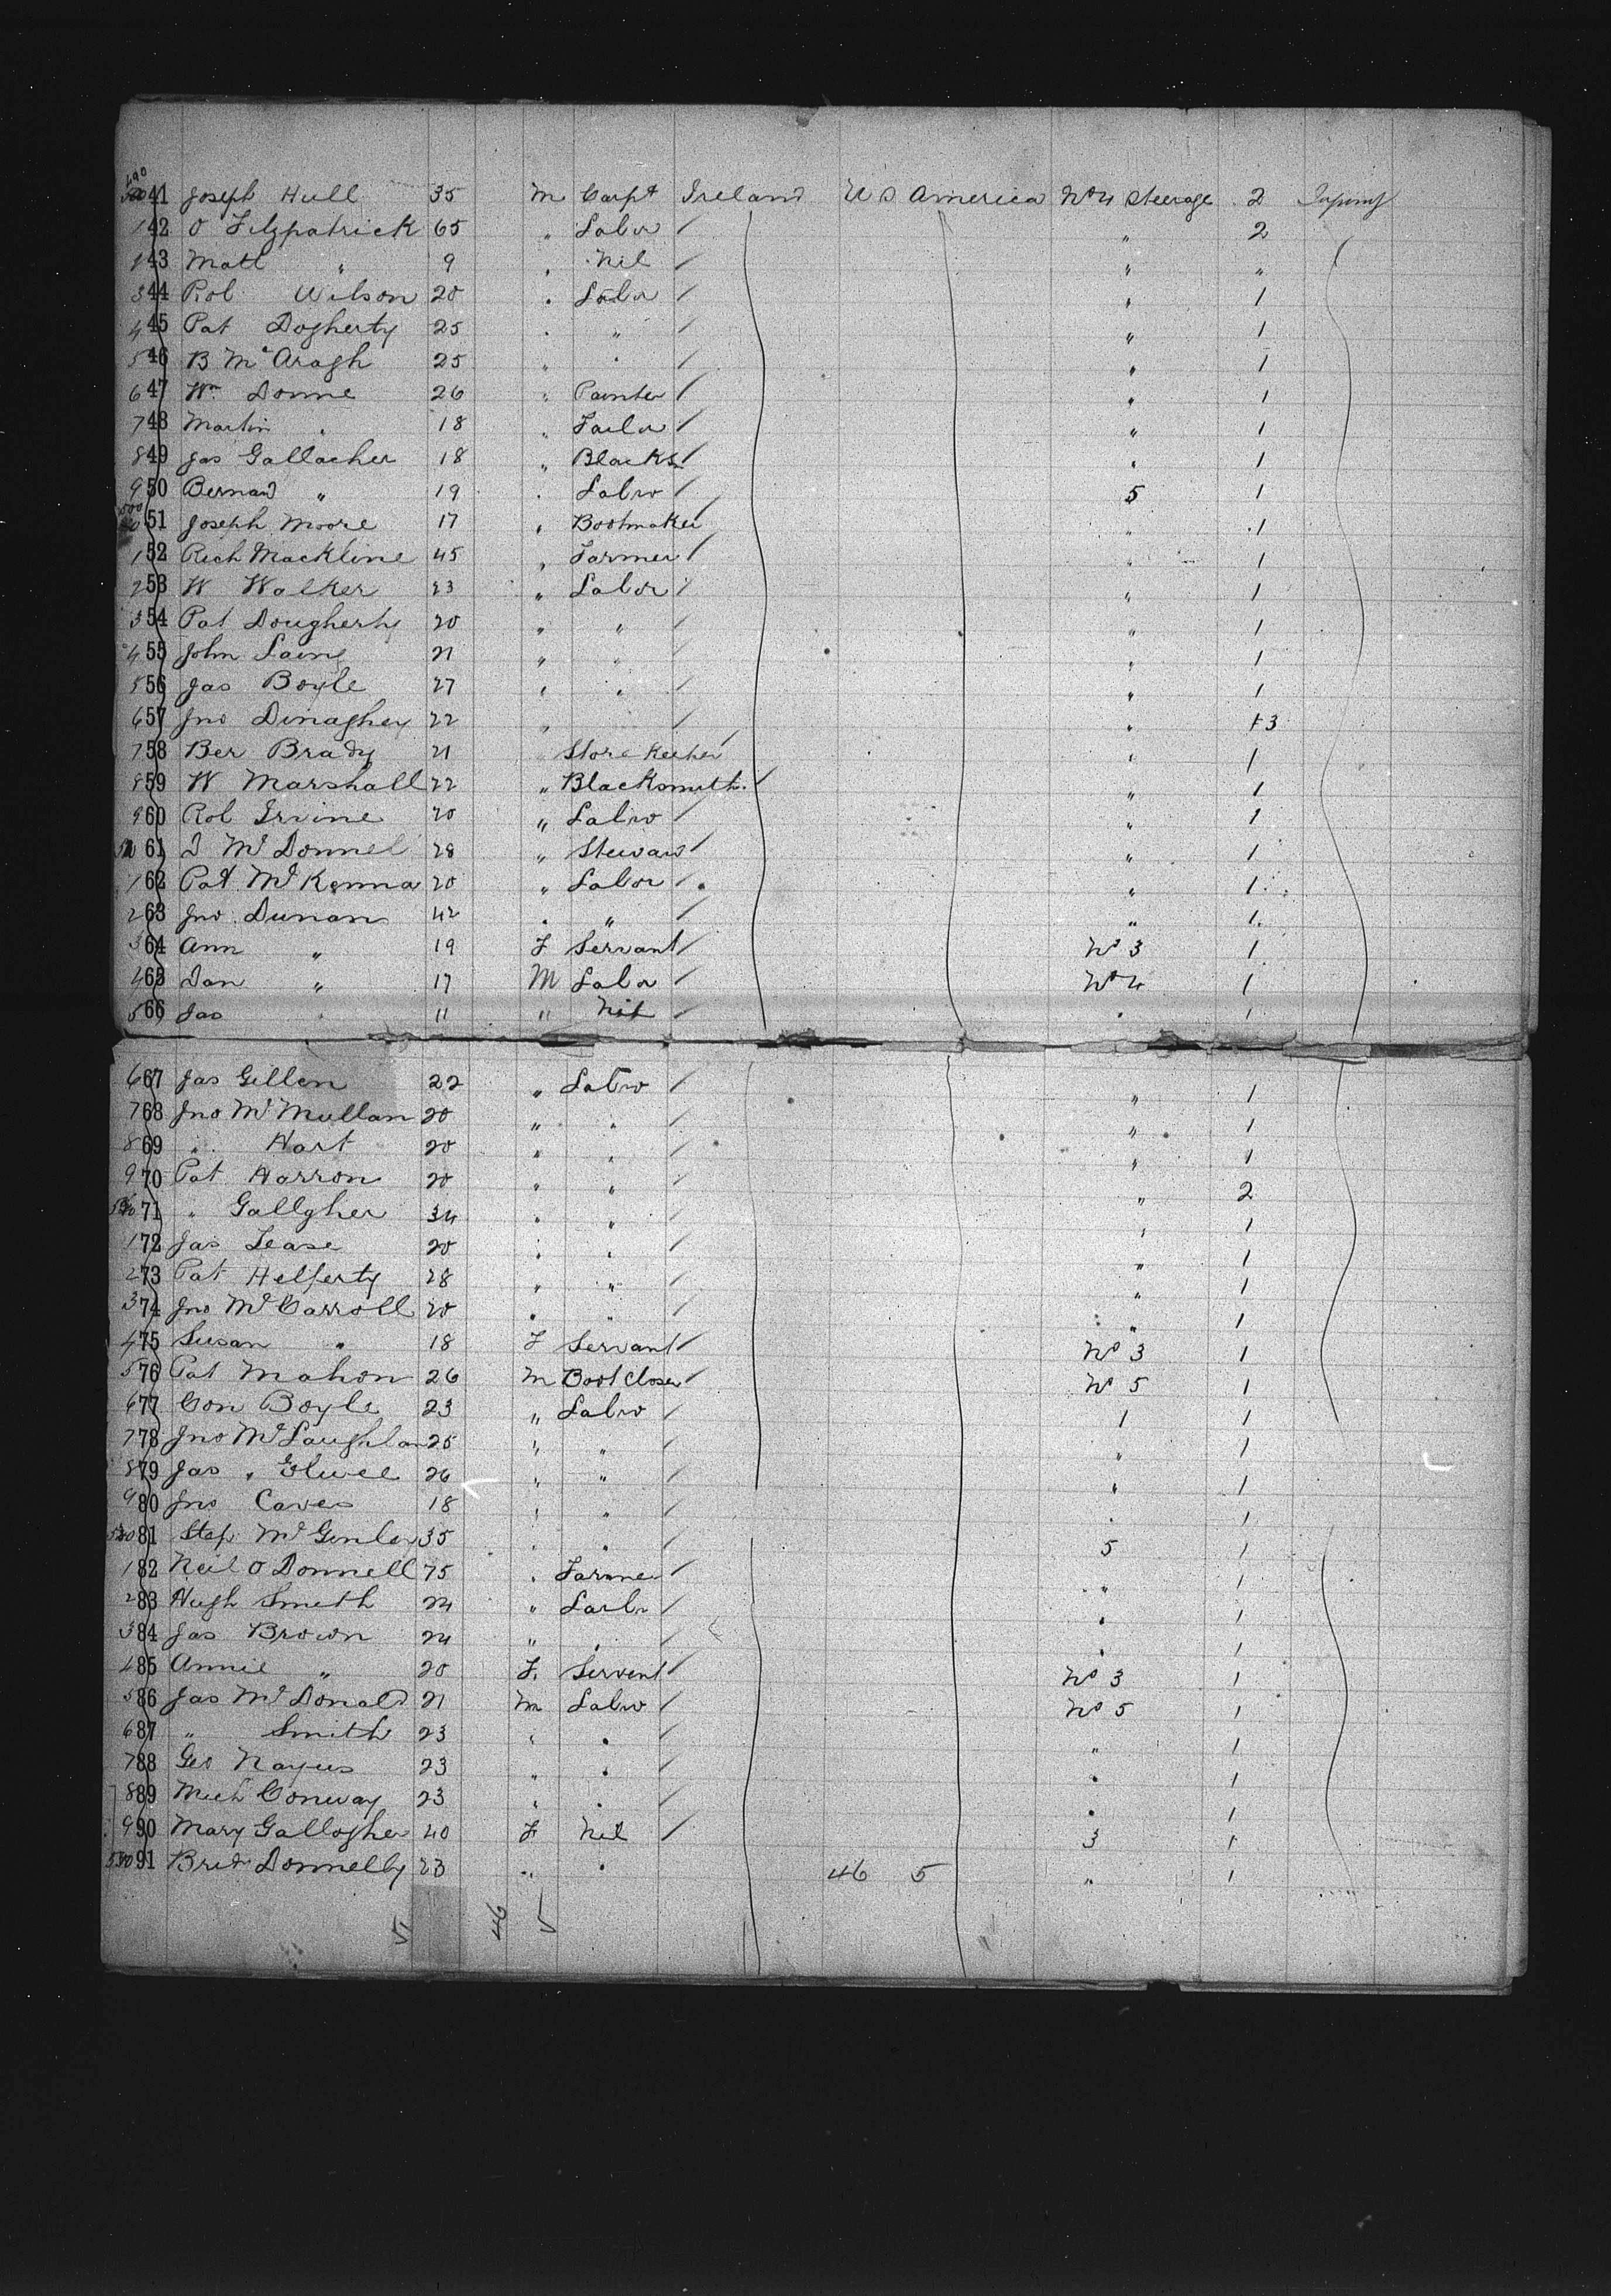 490 41 Joseph Hull 35 M Carpt Ireland U S America No 4 Steerage 2
1 42 O Fitzpatrick 65 " Labor / " 2
1 43 Matt " 9 " Nil / " "
3 44 Rob Wilson 20 " Labor / " 1
4 45 Pat Dogherty 25 " " / " 1
5 46 B Mc Aragh 25 " " / " 1
6 47 Wm Donne 26 " Painter / " 1
7 48 Martin " 18 " Tailor / " 1
8 49 Jas Gallacher 18 " Blacks / " 1
9 50 Bernard " 19 " Labor / 5 1
500 51 Joseph Moore 17 " Bootmaker / " 1
1 52 Rich Mackline 45 " Farmer / " 1
2 53 W Walker 23 " Labor / " 1
3 54 Pat Dougherty 20 " " / " 1
4 55 John Laing 21 " " / " 1
5 56 Jas Boyle 27 " " / " 1
6 57 Jno Dinaghey 22 " / " 3
7 58 Ber Brady 21 " Store Keeper / " 1
8 59 W Marshall 22 " Blacksmith / " 1
9 60 Rob Irvine 20 " Labor / " 1
61 D Mc Donnel 28 " Steward / " 1
1 62 Pat Mc Kenna 20 " Labor / " 1
2 63 Jno Dunan 42 " " / " 1
3 64 Ann " 19 F Servant / No 3 1
4 65 Dan " 17 M Labor / No 4 1
5 66 Jas " 11 " Nil / " 1
6 67 Jas Gillen 22 " Labor / " 1
7 68 Jno Mc Mullan 20 " " / " 1
8 69 " Hart 20 " " / " 1
9 70 Pat Harron 20 " " / " 2
71 " Gallgher 34 " " / " 1
1 72 Jas Lease 20 " " / " 1
2 73 Pat Helferty 28 " " / " 1
3 74 Jno Mc Carroll 20 " " / " 1
4 75 Susan " 18 F Servant / No 3 1
5 76 Pat Mahon 26 M Boot Closer / No 5 1
6 77 Con Boyle 23 " Labor / 1 1
7 78 Jno Mc Laughlan 25 " " / " 1
8 79 Jas " Elwee 26 " " / " 1
9 80 Jno Caves 18 " " / " 1
81 Step Mc Ginley 35 " " / 5 1
1 82 Neil O Donnell 75 " Farmer / " 1
2 83 Hugh Smith 24 " Labr / " 1
3 84 Jas Brown 24 " " / " 1
4 85 Annie " 20 F. Servent / No 3 1
5 86 Jas Mc Donald 21 M Labor / No 5 1
6 87 " Smith 23 " " / " 1
7 88 Geo 23 " " / " 1
8 89 Mich Conway 23 " " / " 1
9 90 Mary Gallogher 40 F Nil / 3 1
91 Brid Donnelly 23 " " 46 5 " 1
51 46 5